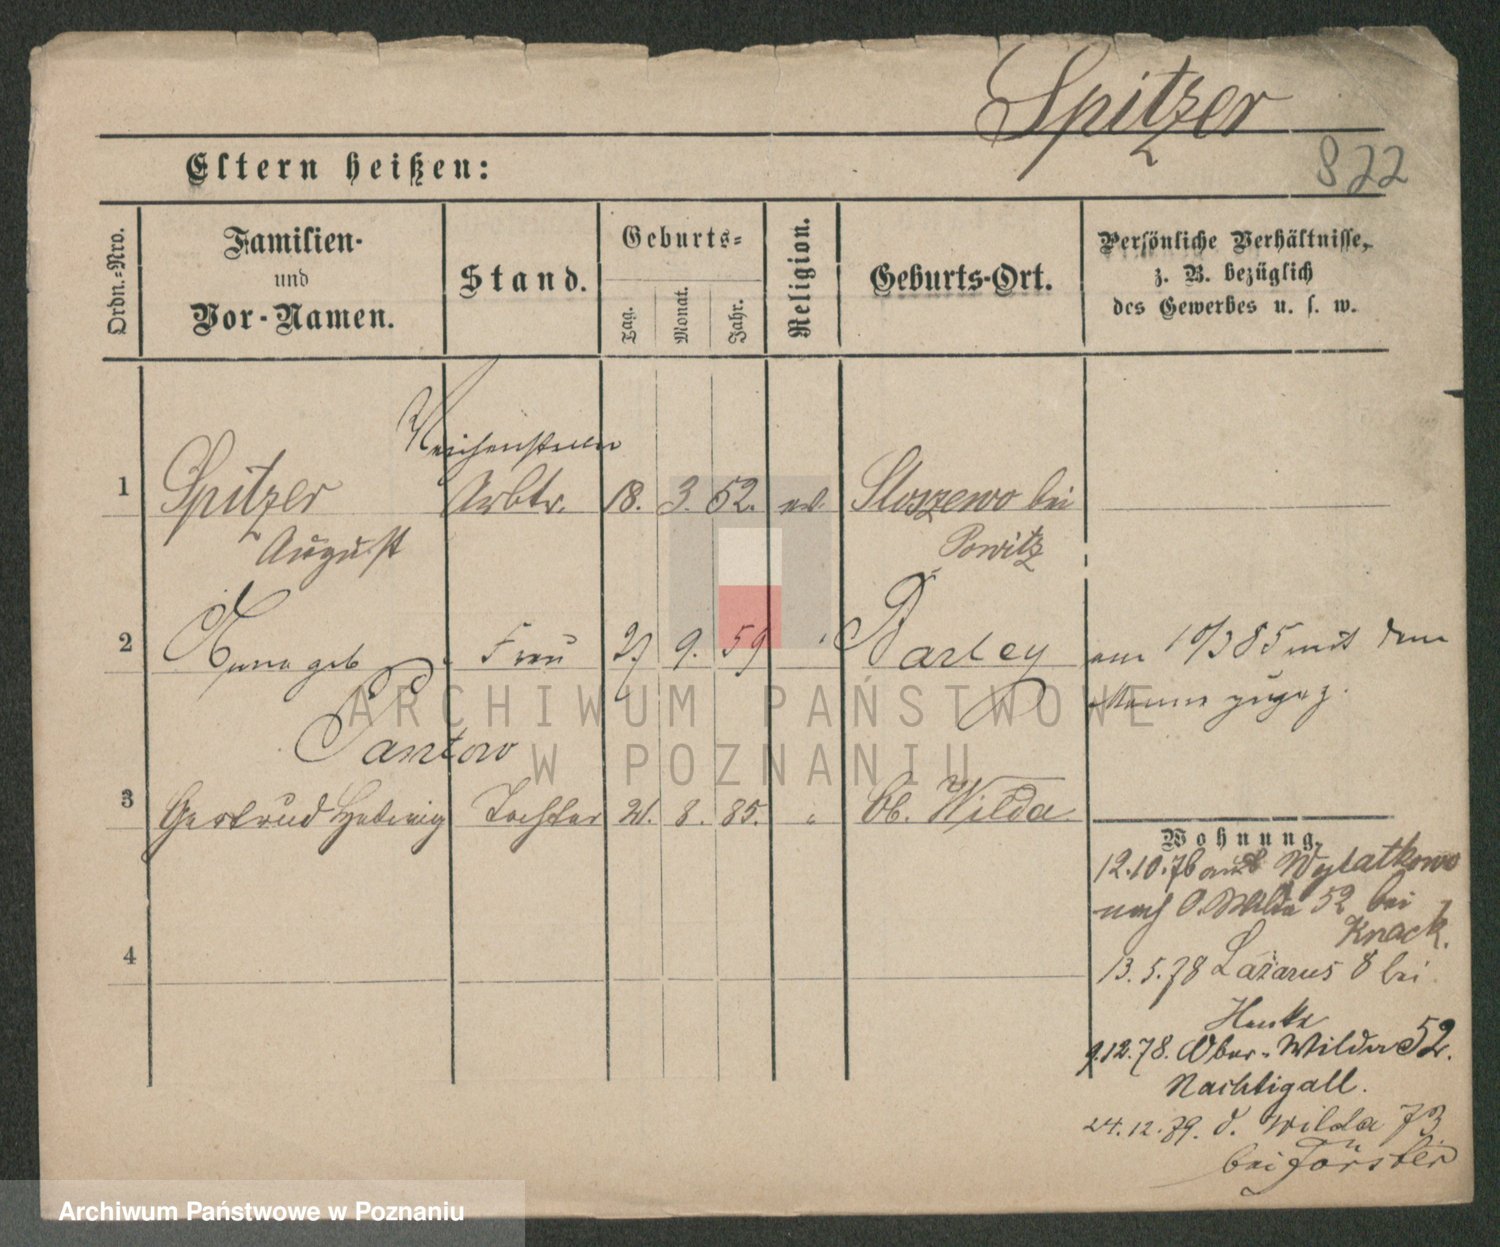 Spitzer
822
Eltern heißen:
Ordn.-Nro.
Familien-
und
Vor-Namen.
Stand.
Geburts-
Tag.
Monat.
Jahr.
Religion.
Geburts-Ort.
Persönliche Verhältnisse,
z. B. bezüglich
des Gewerbes u. s. w.
Weichensteller
1 Spitzer Arbtr. 18. 3. 52. ev. Sloszewo bei
August Powitz
2 Anna geb. Frau 27 9. 59 " Parley am 10/3 85 mit dem
Manne zugez.
Pantow
3 Gertrud Hedwig Tochter 21. 8. 85. " Ob. Wilda
Wohnung.
12.10.76 aus Wylatkowo
nach O. Wilda 52 bei
Knack.
4
13.5.78 Lazarus 8 bei
Henke
9.12.78. Ober-Wilda 52.
Nachtigall.
24.12.79. O. Wilda 73
bei Förster
ARCHIWUM PAŃSTWOWE
W POZNANIU
Archiwum Państwowe w Poznaniu